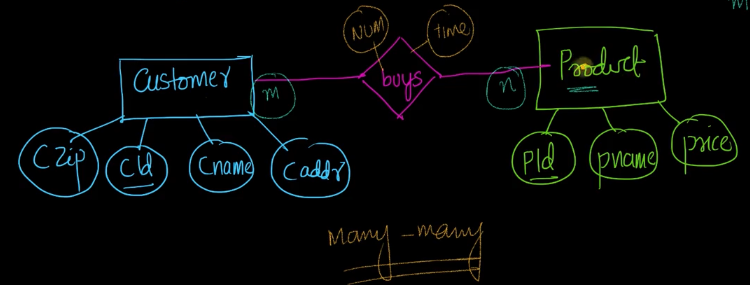 m
NUM
time
Customer
m
buys
n
Product
Czip
CId
Cname
Caddr
PId
pname
price
many - many